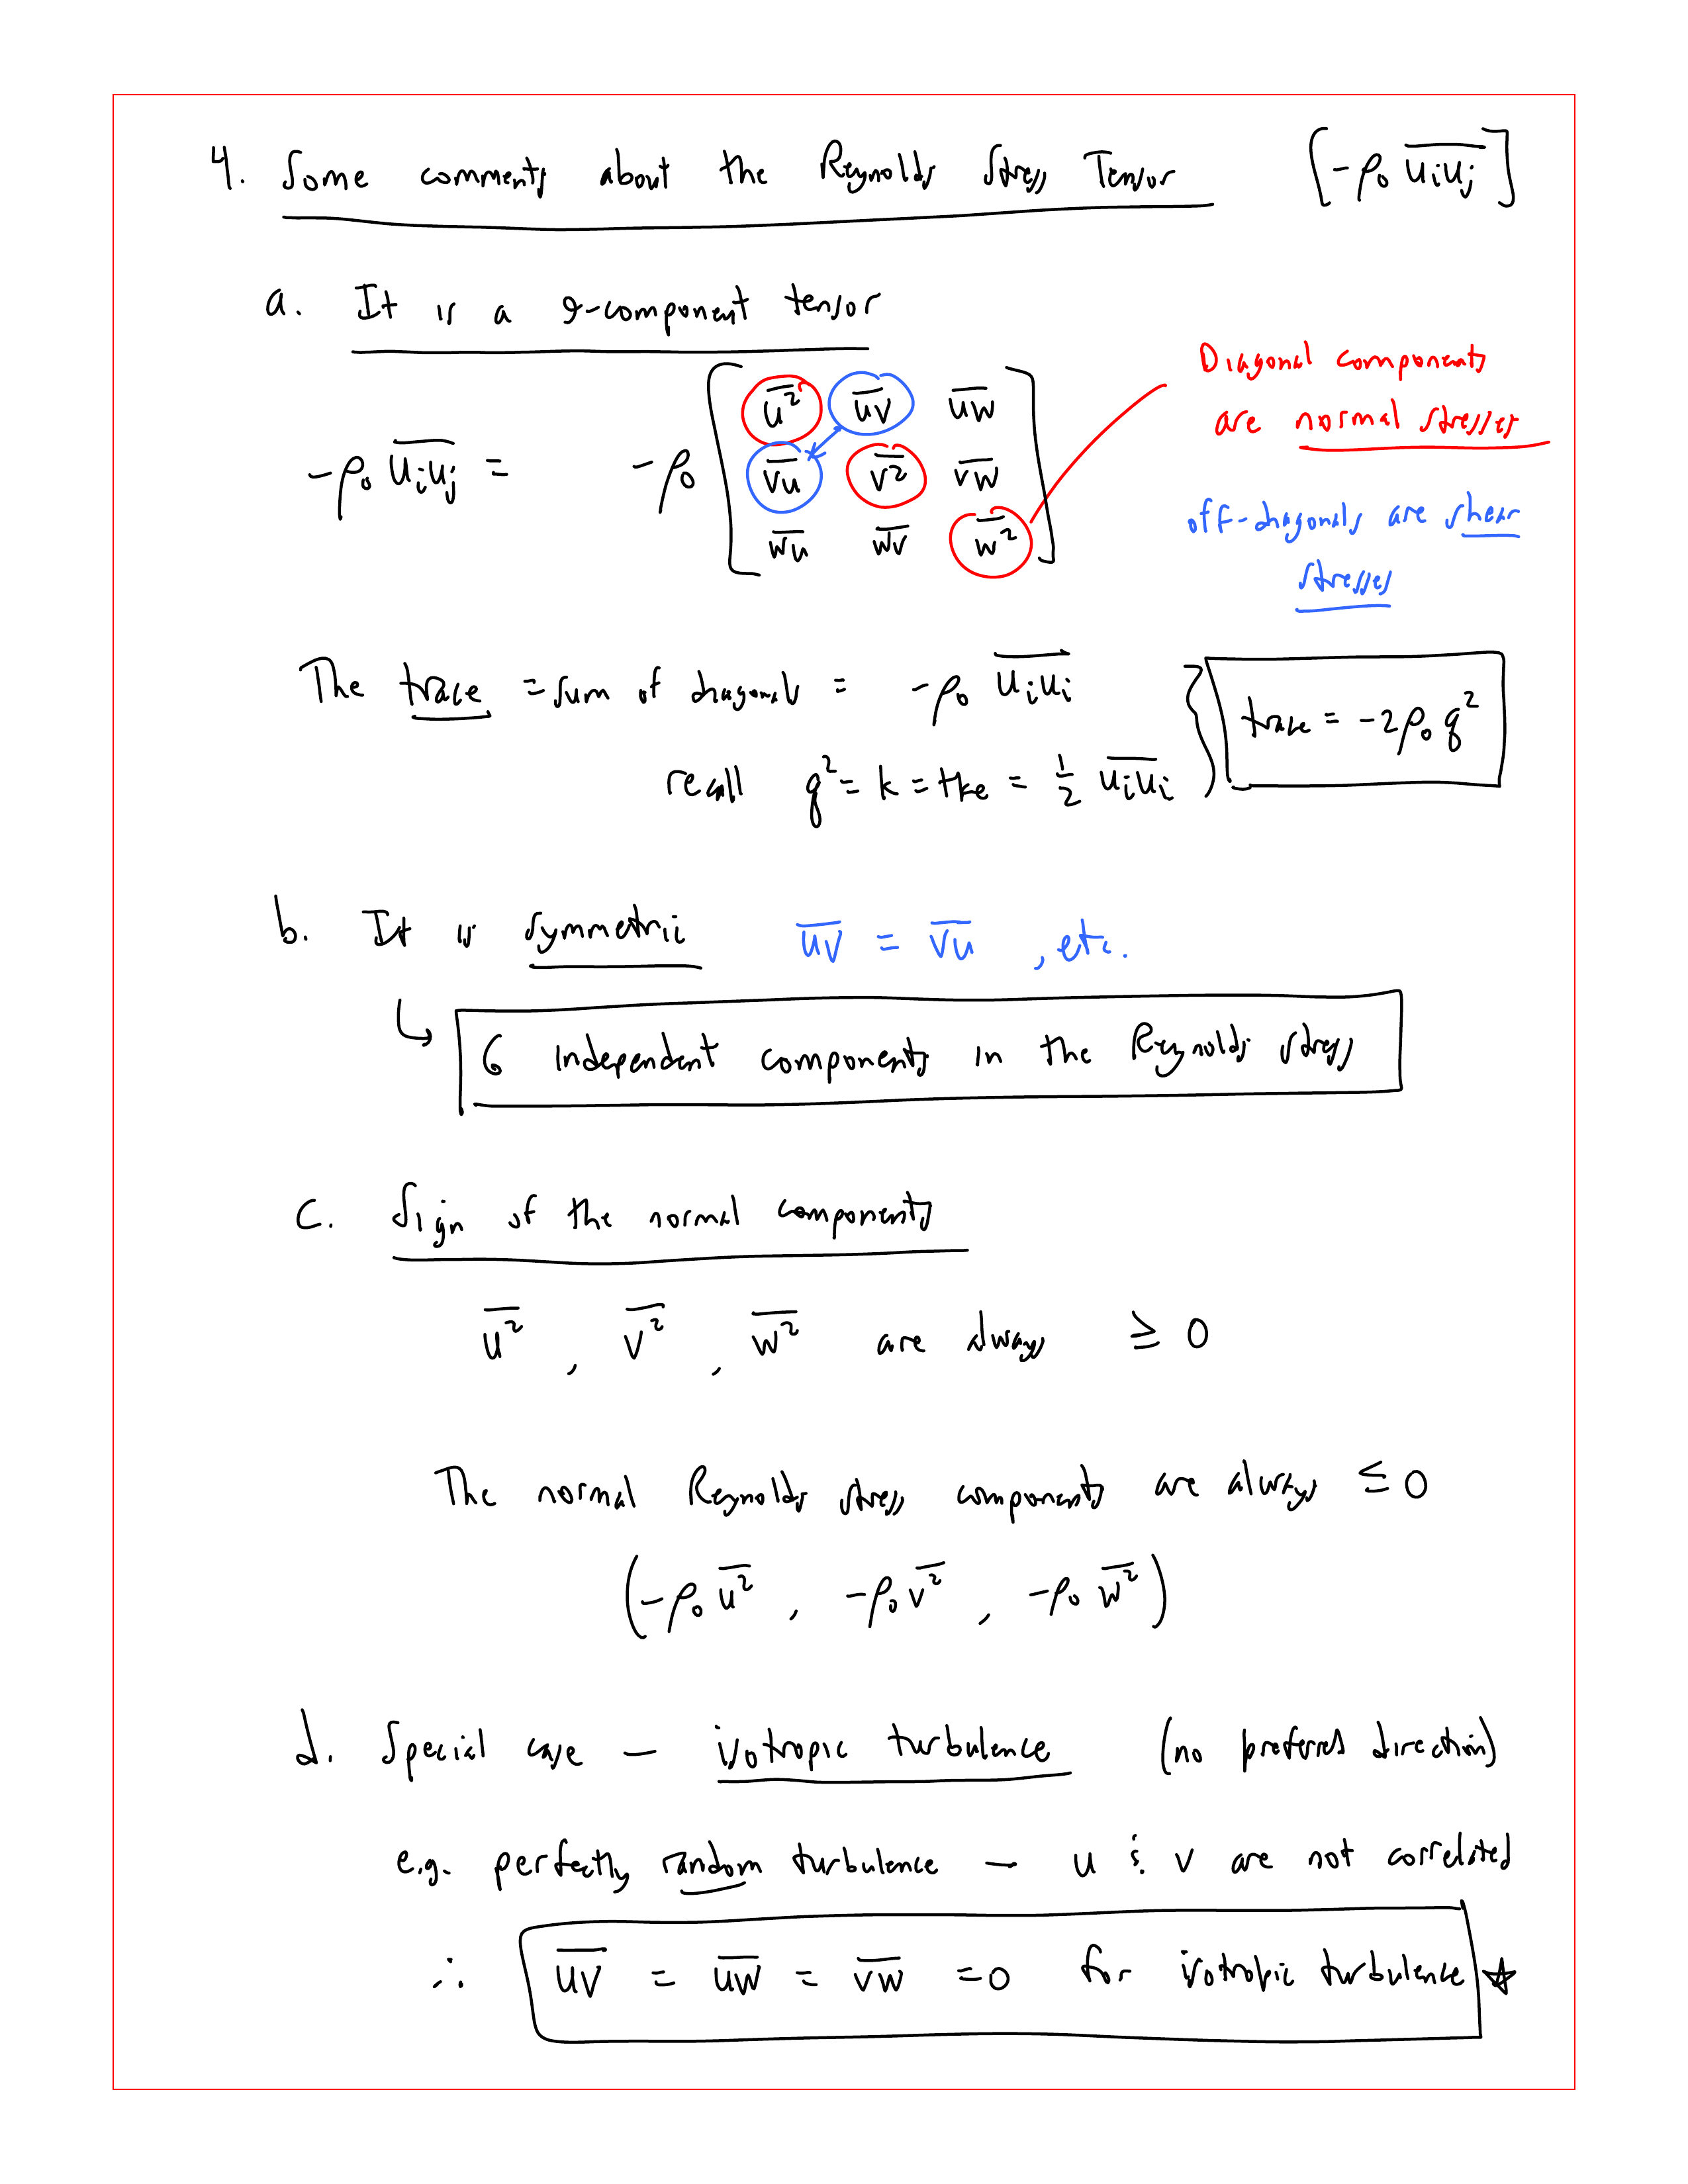 4. Some comments about the Reynolds Stress Tensor [-ρ₀ \overline{uᵢuⱼ}]
a. It is a 9-component tensor
Diagonal components
are normal stresses
-ρ₀ \overline{uᵢuⱼ} = -ρ₀ [ \overline{u²} \overline{uv} \overline{uw}
\overline{vu} \overline{v²} \overline{vw}
\overline{wu} \overline{wv} \overline{w²} ]
off-diagonals are shear
stresses
The trace = sum of diagonals = -ρ₀ \overline{uᵢuᵢ}
recall q² = k = tke = ½ \overline{uᵢuᵢ}
} trace = -2ρ₀ q²
b. It is symmetric \overline{uv} = \overline{vu}, etc.
↳ 6 independent components in the Reynolds stress
c. Sign of the normal components
\overline{u²}, \overline{v²}, \overline{w²} are always ≥ 0
The normal Reynolds stress components are always ≤ 0
(-ρ₀ \overline{u²}, -ρ₀ \overline{v²}, -ρ₀ \overline{w²})
d. Special case — isotropic turbulence (no preferred direction)
e.g. perfectly random turbulence — u & v are not correlated
∴ \overline{uv} = \overline{uw} = \overline{vw} = 0 for isotropic turbulence ☆